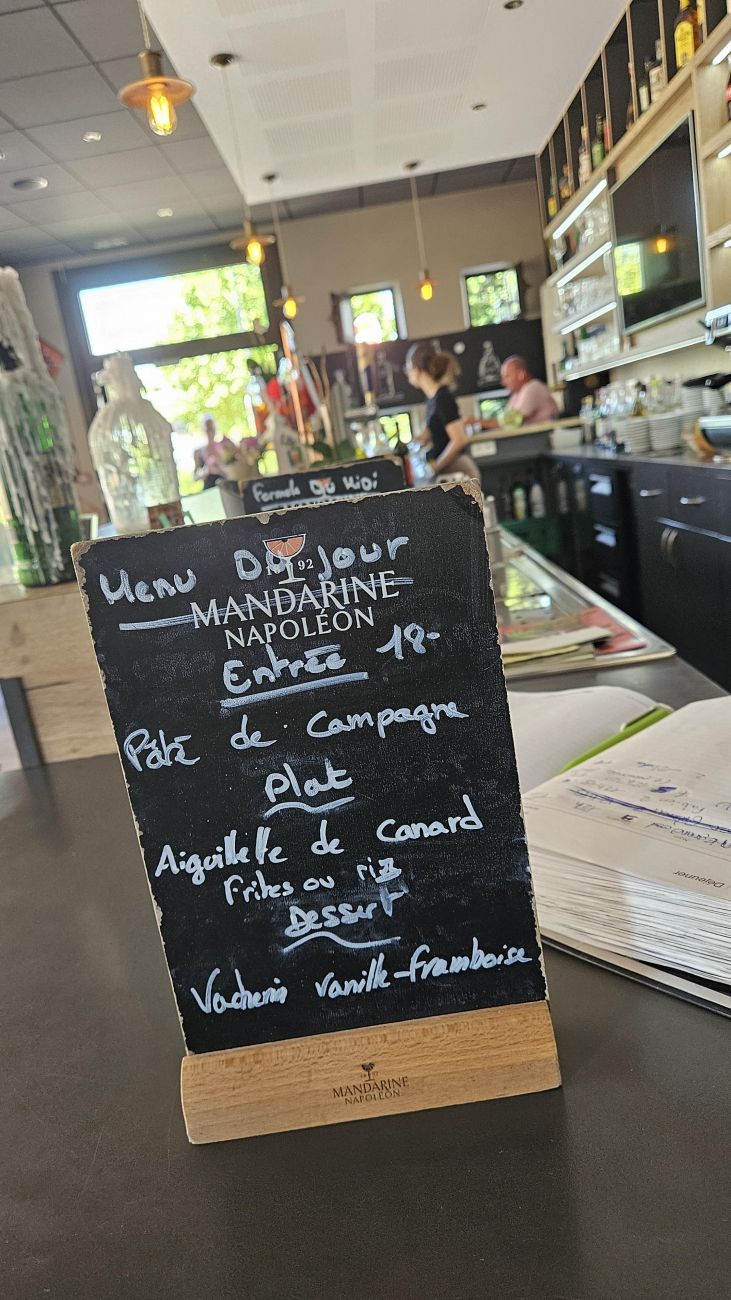 Formule Du Midi
Menu Du jour
1892
MANDARINE
NAPOLÉON
Entrée 18-
Pâté de Campagne
Plat
Aiguillette de Canard
Frites ou riz
Dessert
Vacherin Vanille-framboise
MANDARINE
NAPOLÉON
Déjeuner